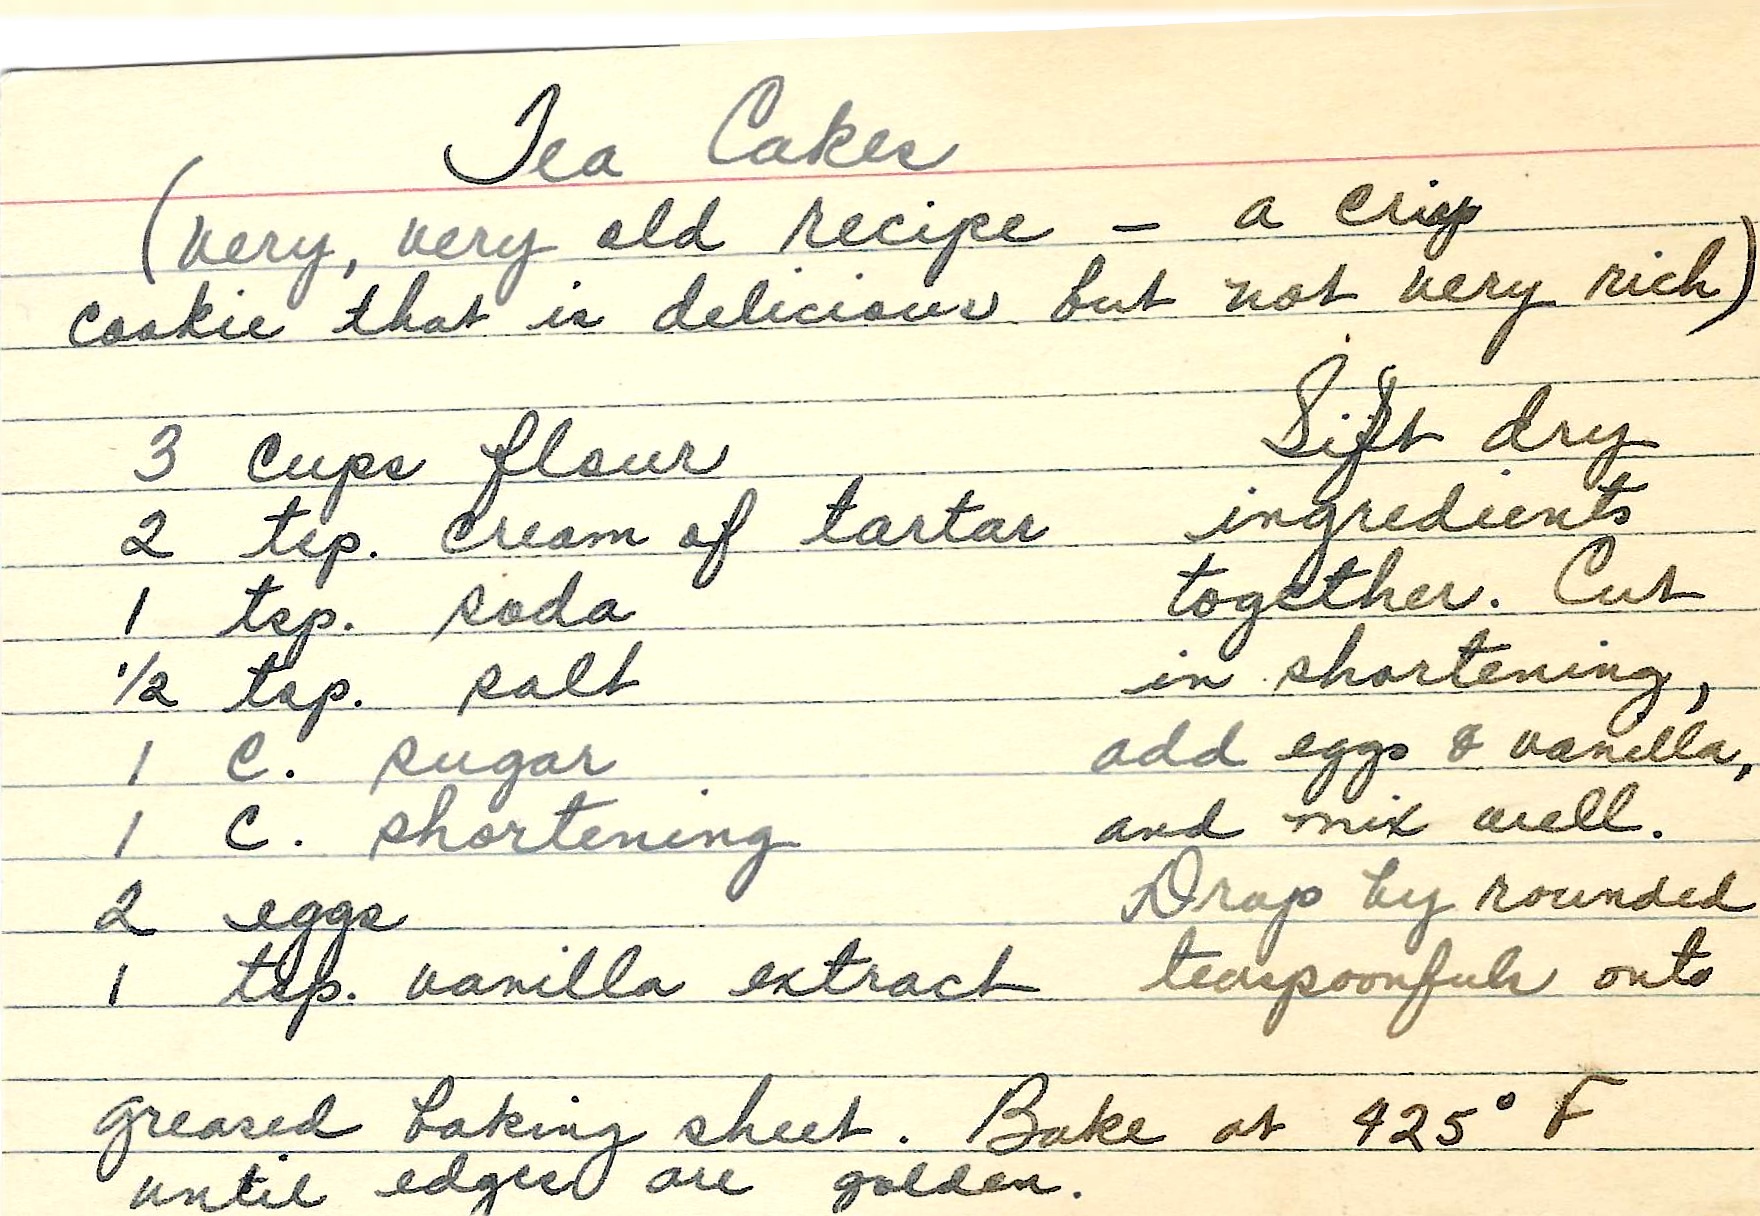 Tea Cakes
(very, very old recipe – a crisp
cookie that is delicious but not very rich)
3 cups flour
2 tsp. cream of tartar
1 tsp. soda
1/2 tsp. salt
1 C. sugar
1 C. shortening
2 eggs
1 tsp. vanilla extract
Sift dry
ingredients
together. Cut
in shortening,
add eggs & vanilla,
and mix well.
Drop by rounded
teaspoonfuls onto
greased baking sheet. Bake at 425° F
until edges are golden.